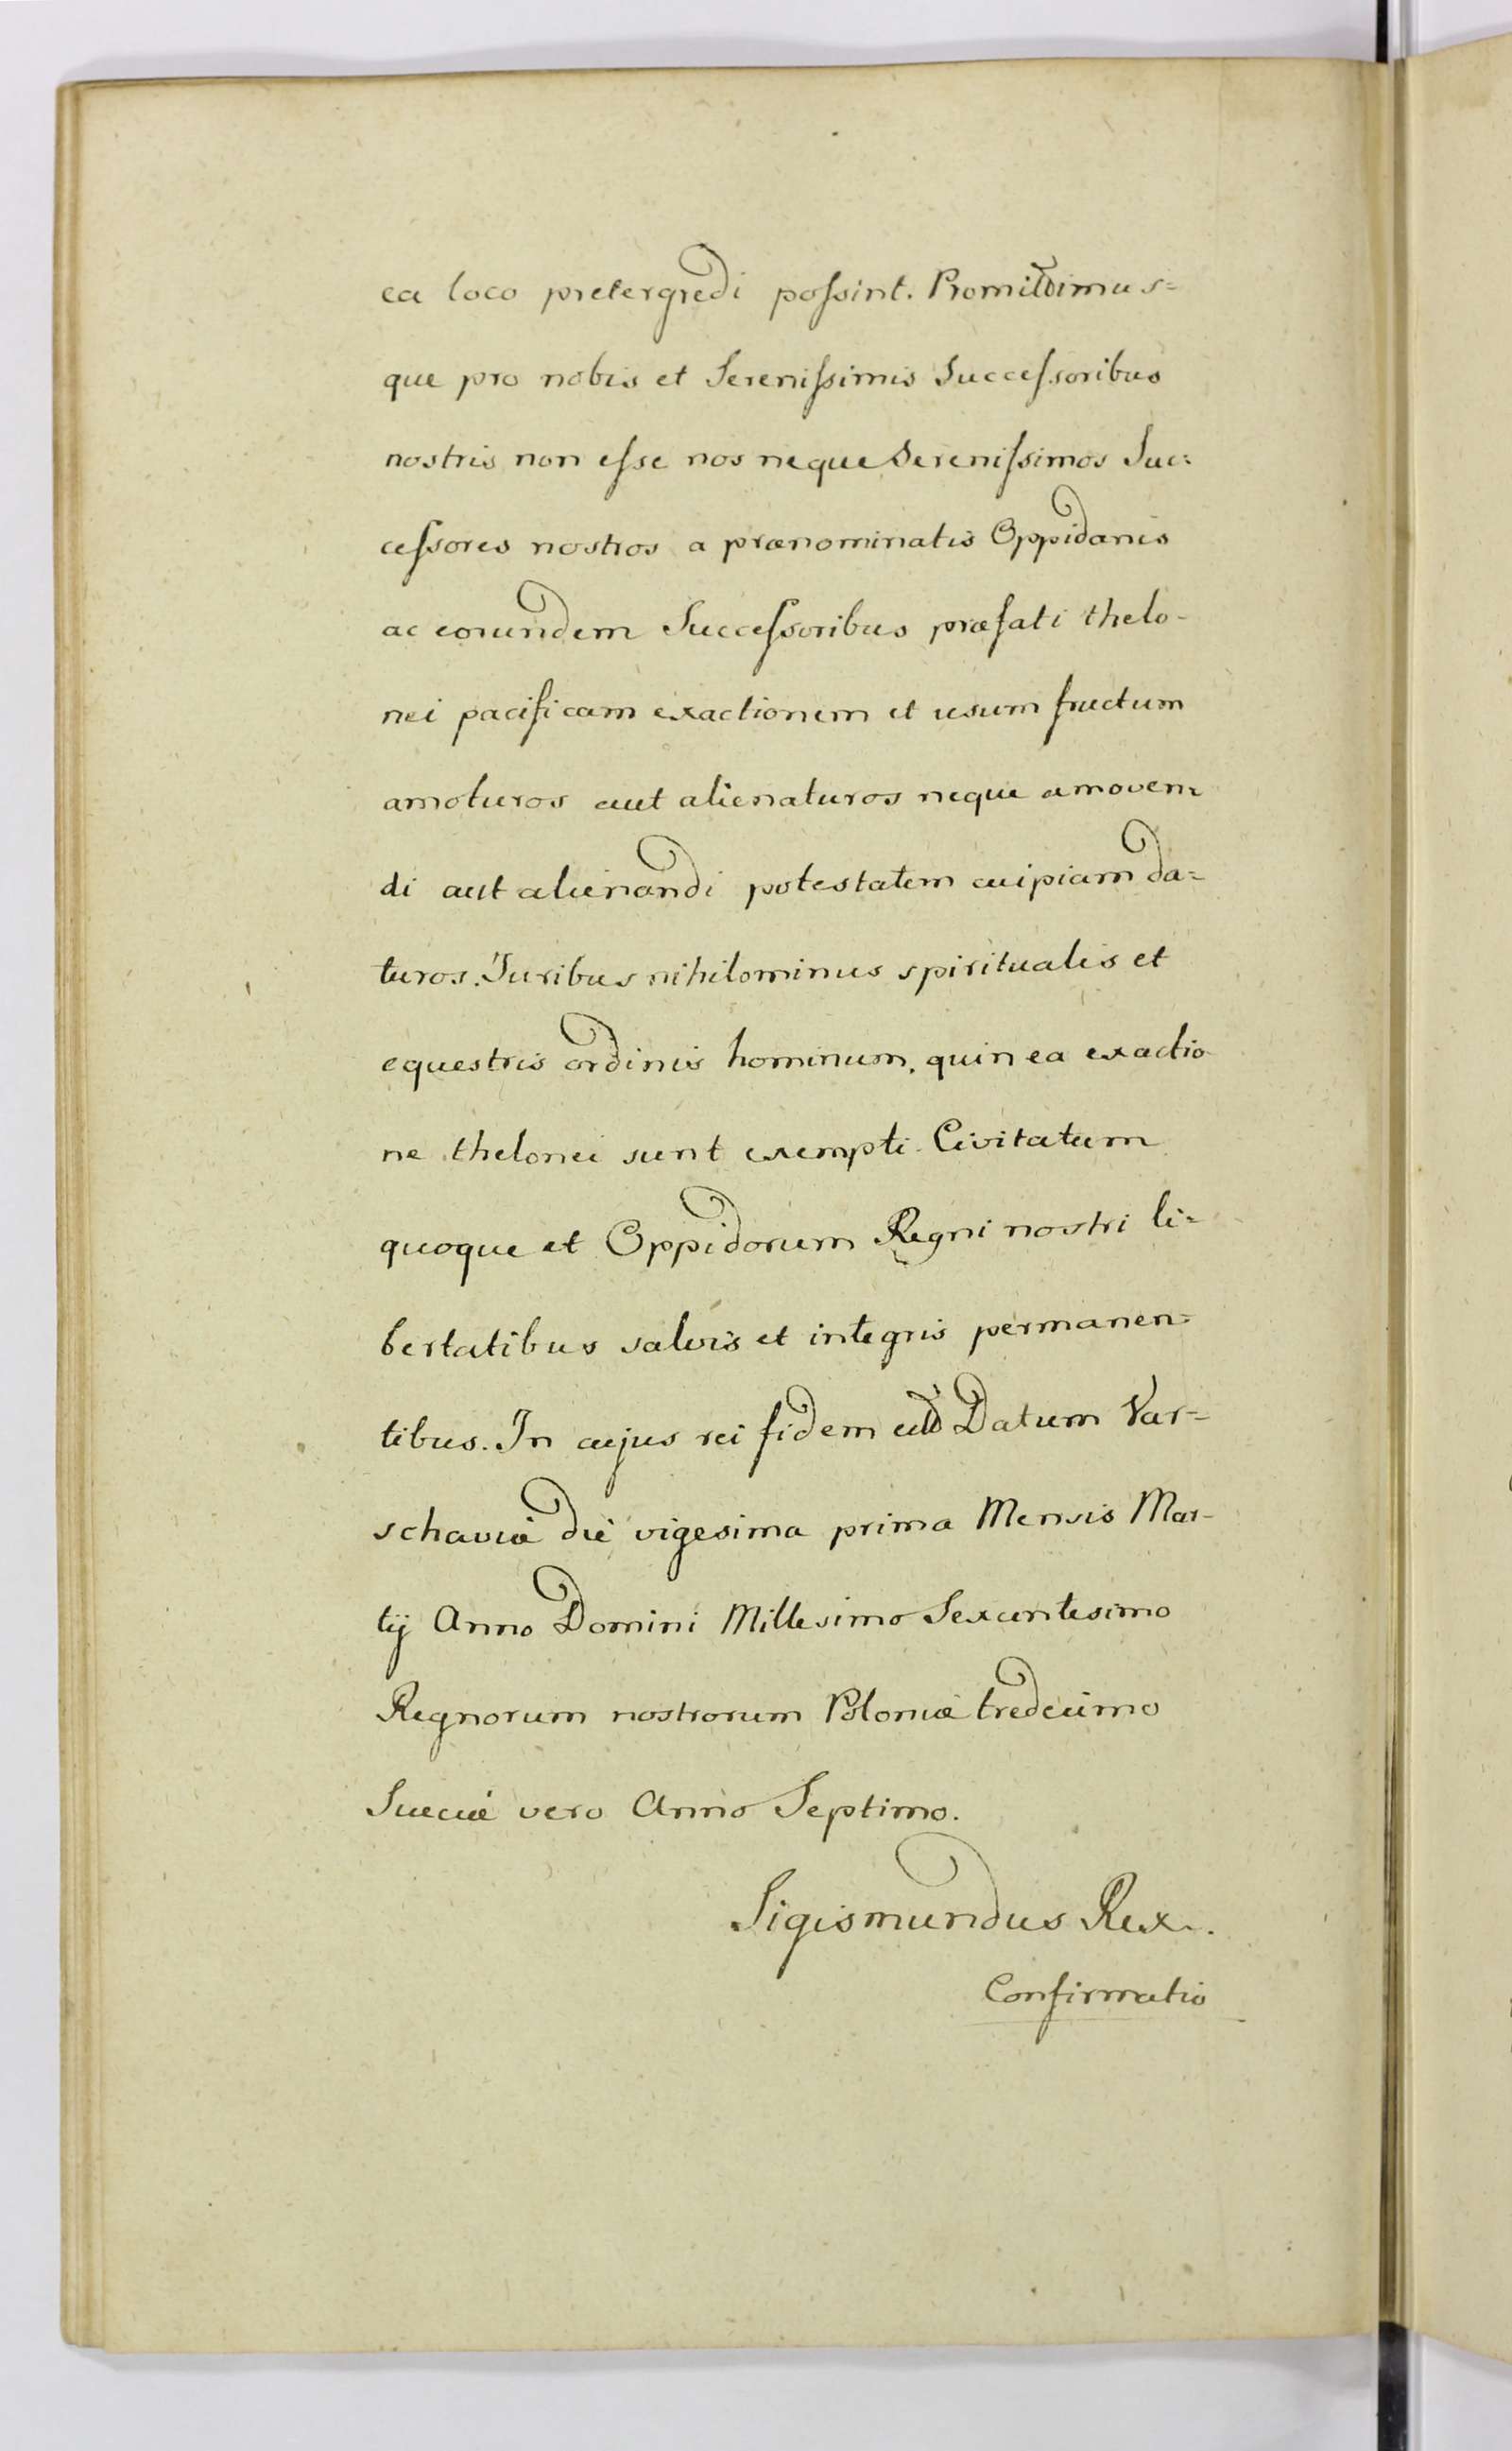 ea loco pretergredi possint. Promittimus=
que pro nobis et Serenissimis Successoribus
nostris non esse nos neque Serenissimos Suc=
cessores nostros a prænominatis Oppidanis
ac eorundem Successoribus præfati thelo-
nei pacificam exactionem et usum fructum
amoturos aut alienaturos neque amoven=
di aut alienandi potestatem cuipiam da=
turos. Juribus nihilominus spiritualis et
equestris ordinis hominum, quin ea exactio
ne thelonei sunt exempti. Civitatum
quoque et Oppidorum Regni nostri li=
bertatibus salvis et integris permanen=
tibus. In cujus rei fidem Datum Var=
schaviæ die vigesima prima Mensis Mar-
tij Anno Domini Millesimo Sexcentesimo
Regnorum nostrorum Poloniæ tredecimo
Sueciæ vero Anno Septimo.
Sigismundus Rex.
Confirmatio